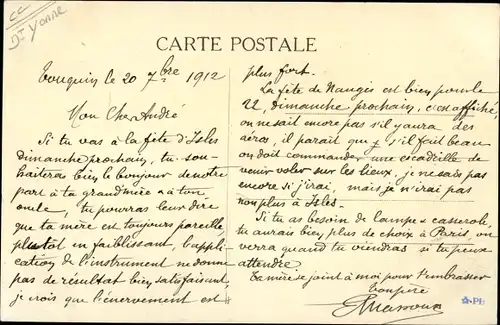 CC
Dt Yonne
CARTE POSTALE
Touquin le 20 7bre 1912
Mon Cher André
Si tu vas à la fête d'Isles
dimanche prochain, tu sou-
haiteras bien le bonjour de notre
part à ta grand'mère & à ton
oncle, tu pourras leur dire
que ta mère est toujours pareille
plutôt en faiblissant, l'appli-
cation de l'instrument ne donne
pas de résultat bien satisfaisant,
je crois que l'énervement est
plus fort.
La fête de Nangis est bien pour le
22, dimanche prochain, c'est affiché,
on ne sait encore pas s'il y aura des
aéros, il parait que s'il fait beau
on doit commander une escadrille de
venir voler sur les lieux, je ne sais pas
encore si j'irai, mais je n'irai pas
non plus à Isles.
Si tu as besoin de lampe & casserole,
tu aurais bien plus de choix à Paris, on
verra quand tu viendras si tu peux
attendre
Ta mère se joint à moi pour t'embrasser
Ton père
PB